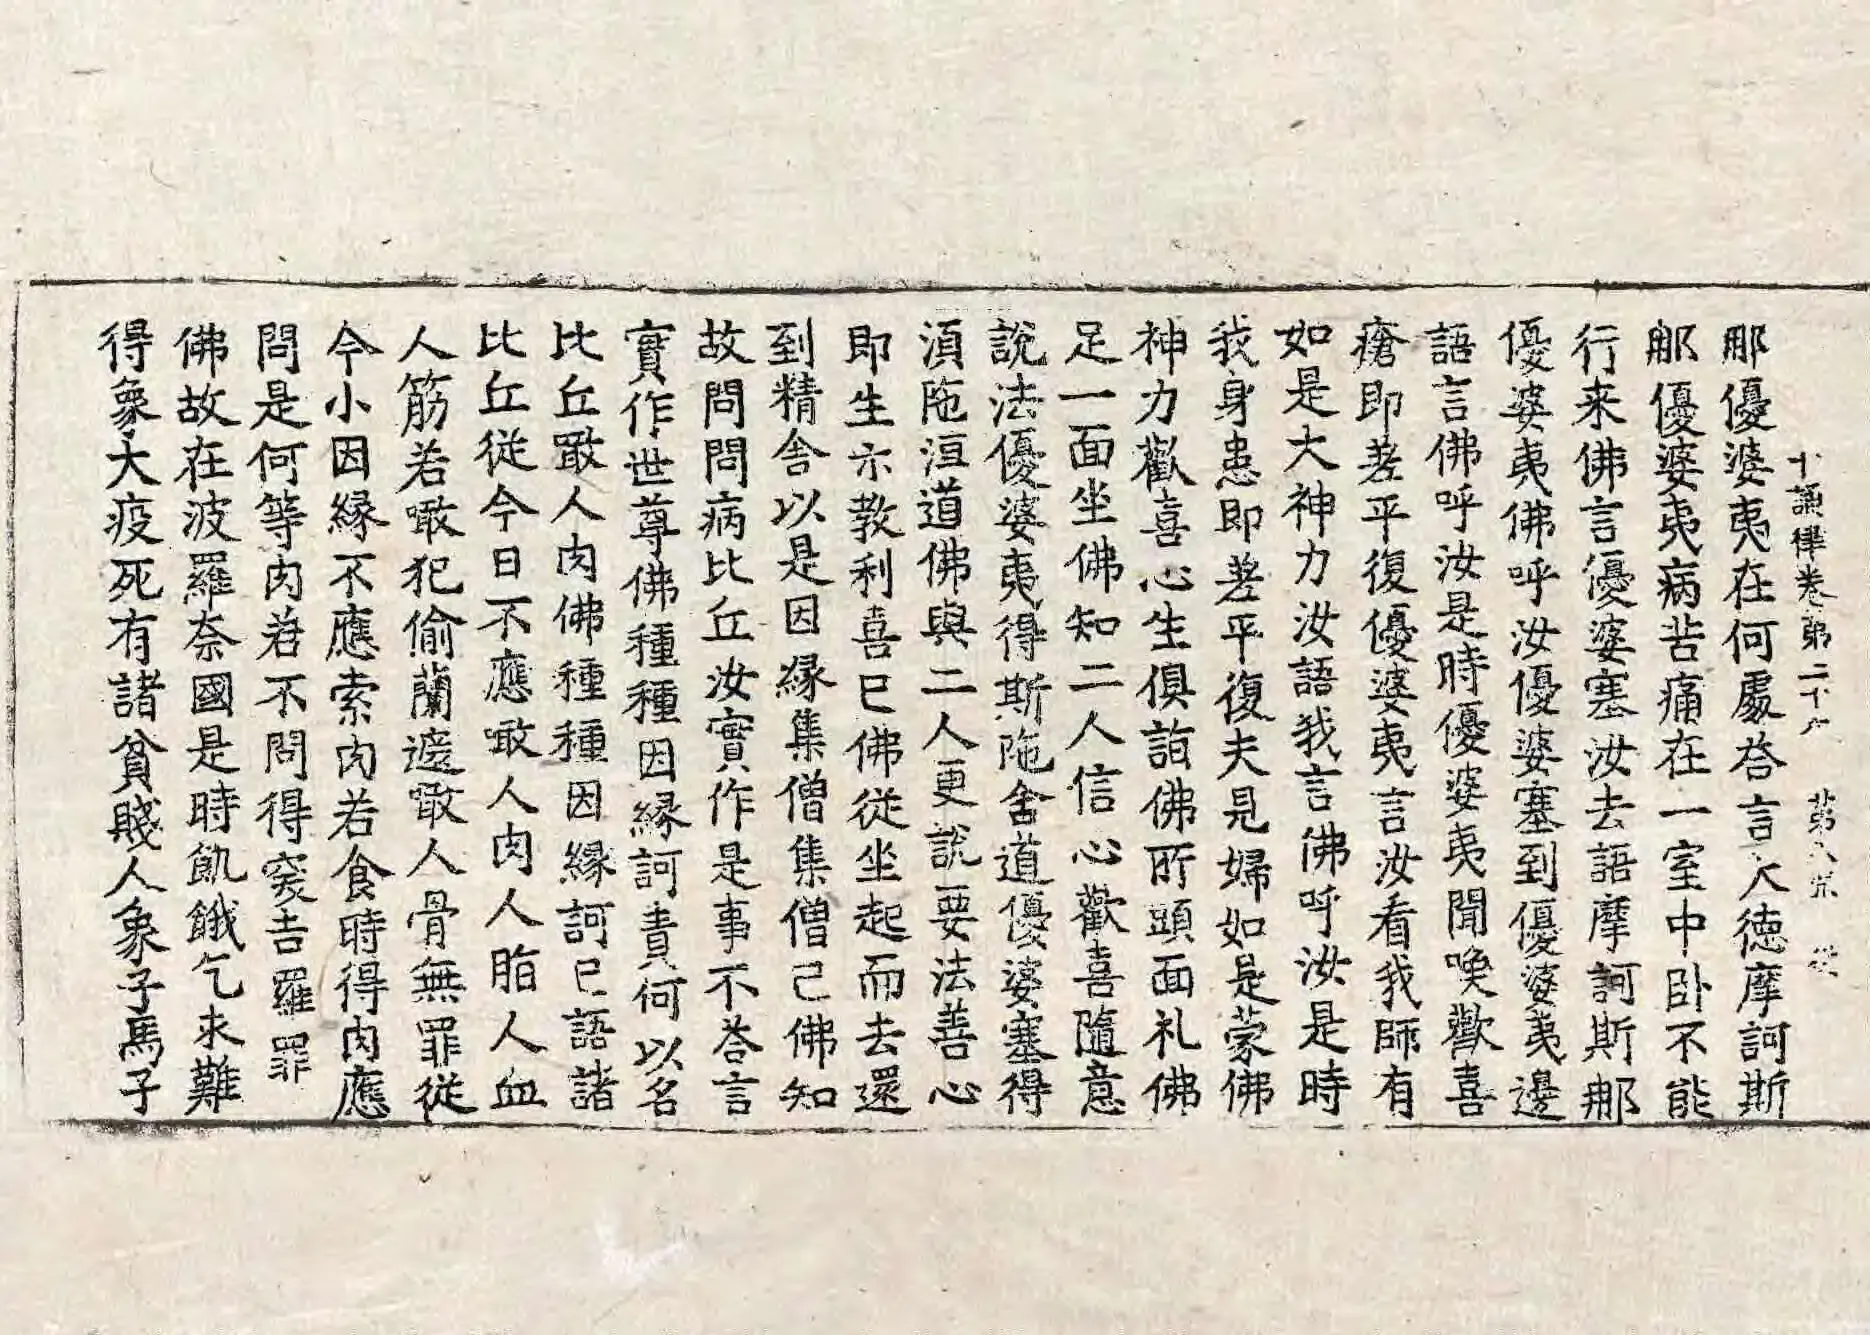 十誦律卷第二十六 第八張 從
那優婆夷在何處荅言大德摩訶斯
那優婆夷病苦痛在一室中卧不能
行来佛言優婆塞汝去語摩訶斯那
優婆夷佛呼汝優婆塞到優婆夷邊
語言佛呼汝是時優婆夷聞喚歡喜
瘡即差平復優婆夷言汝看我師有
如是大神力汝語我言佛呼汝是時
我身患即差平復夫見婦如是蒙佛
神力歡喜心生俱詣佛所頭面礼佛
足一面坐佛知二人信心歡喜隨意
說法優婆夷得斯陁舍道優婆塞得
湏陁洹道佛與二人更說要法善心
即生示教利喜已佛從坐起而去還
到精舍以是因緣集僧集僧已佛知
故問問病比丘汝實作是事不荅言
實作世尊佛種種因緣訶責何以名
比丘噉人肉佛種種因緣訶已語諸
比丘從今日不應噉人肉人脂人血
人筋若噉犯偷蘭遮噉人骨無罪從
今小因緣不應索肉若食時得肉應
問是何等肉若不問得突吉羅罪
佛故在波羅奈國是時飢餓乞求難
得象大疫死有諸貧賤人象子馬子